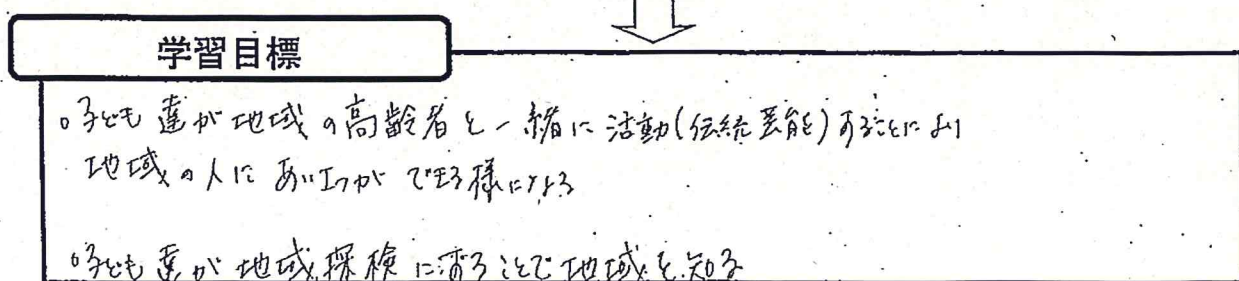 学習目標
○子ども達が地域の高齢者と一緒に活動(伝統芸能)することにより
地域の人にあいさつができる様になる
○子ども達が地域探検に出ることで地域を知る